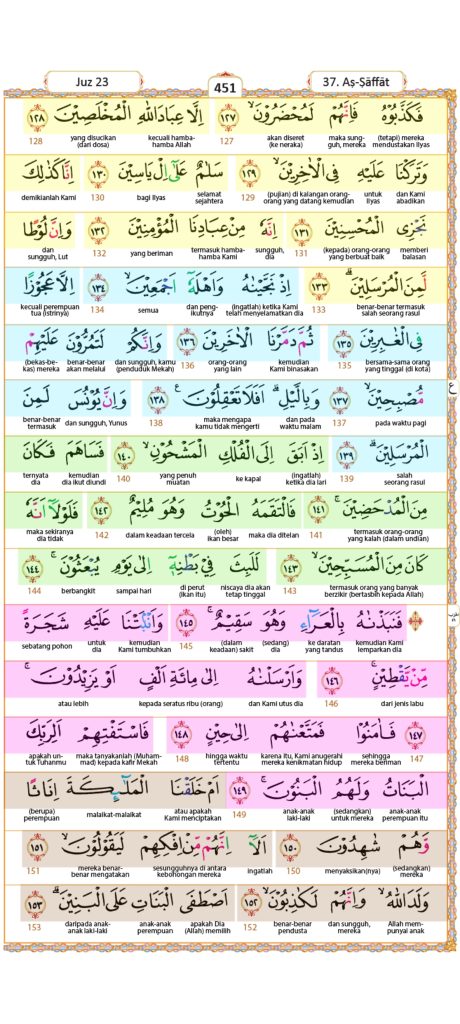 Juz 23
451
37. Aṣ-Ṣāffāt
فَكَذَّبُوْهُ فَاِنَّهُمْ لَمُحْضَرُوْنَۙ ١٢٧ اِلَّا عِبَادَ اللّٰهِ الْمُخْلَصِيْنَ ١٢٨
(tetapi) mereka mendustakan Ilyas maka sungguh, mereka akan diseret (ke neraka) 127 kecuali hamba-hamba Allah yang disucikan (dari dosa) 128
وَتَرَكْنَا عَلَيْهِ فِى الْاٰخِرِيْنَۙ ١٢٩ سَلٰمٌ عَلٰٓى اِلْ يَاسِيْنَ ١٣٠ اِنَّا كَذٰلِكَ
dan Kami abadikan untuk Ilyas (pujian) di kalangan orang-orang yang datang kemudian 129 selamat sejahtera bagi Ilyas 130 demikianlah Kami
نَجْزِى الْمُحْسِنِيْنَ ١٣١ اِنَّهٗ مِنْ عِبَادِنَا الْمُؤْمِنِيْنَ ١٣٢ وَاِنَّ لُوْطًا
memberi balasan (kepada) orang-orang yang berbuat baik 131 sungguh, dia termasuk hamba-hamba Kami yang beriman 132 dan sungguh, Lut
لَّمِنَ الْمُرْسَلِيْنَۗ ١٣٣ اِذْ نَجَّيْنٰهُ وَاَهْلَهٗٓ اَجْمَعِيْنَۙ ١٣٤ اِلَّا عَجُوْزًا
benar-benar termasuk salah seorang rasul 133 (ingatlah) ketika Kami telah menyelamatkan dia dan pengikutnya semua 134 kecuali perempuan tua (istrinya)
فِى الْغٰبِرِيْنَ ١٣٥ ثُمَّ دَمَّرْنَا الْاٰخَرِيْنَ ١٣٦ وَاِنَّكُمْ لَتَمُرُّوْنَ عَلَيْهِمْ
bersama-sama orang yang tinggal (di kota) 135 kemudian Kami binasakan orang-orang yang lain 136 dan sungguh, kamu (penduduk Mekah) benar-benar akan melalui (bekas-bekas) mereka
مُّصْبِحِيْنَۙ ١٣٧ وَبِالَّيْلِۗ اَفَلَا تَعْقِلُوْنَ ࣖ ١٣٨ وَاِنَّ يُوْنُسَ لَمِنَ
pada waktu pagi 137 dan pada waktu malam maka mengapa kamu tidak mengerti 138 dan sungguh, Yunus benar-benar termasuk
ع
الْمُرْسَلِيْنَۗ ١٣٩ اِذْ اَبَقَ اِلَى الْفُلْكِ الْمَشْحُوْنِۙ ١٤٠ فَسَاهَمَ فَكَانَ
salah seorang rasul 139 (ingatlah) ketika dia lari ke kapal yang penuh muatan 140 kemudian dia ikut diundi ternyata dia
مِنَ الْمُدْحَضِيْنَۚ ١٤١ فَالْتَقَمَهُ الْحُوْتُ وَهُوَ مُلِيْمٌ ١٤٢ فَلَوْلَآ اَنَّهٗ
termasuk orang-orang yang kalah (dalam undian) 141 maka dia ditelan (oleh) ikan besar dalam keadaan tercela 142 maka sekiranya dia tidak
كَانَ مِنَ الْمُسَبِّحِيْنَۙ ١٤٣ لَلَبِثَ فِيْ بَطْنِهٖٓ اِلٰى يَوْمِ يُبْعَثُوْنَۚ ١٤٤
termasuk orang yang banyak berzikir (bertasbih kepada Allah) 143 niscaya dia akan tetap tinggal di perut (ikan itu) sampai hari berbangkit 144
فَنَبَذْنٰهُ بِالْعَرَاۤءِ وَهُوَ سَقِيْمٌۚ ١٤٥ وَاَنْۢبَتْنَا عَلَيْهِ شَجَرَةً
kemudian Kami lemparkan dia ke daratan yang tandus (sedang) dia (dalam keadaan) sakit 145 kemudian Kami tumbuhkan untuk dia sebatang pohon
مِّنْ يَّقْطِيْنٍۚ ١٤٦ وَاَرْسَلْنٰهُ اِلٰى مِائَةِ اَلْفٍ اَوْ يَزِيْدُوْنَۚ
dari jenis labu 146 dan Kami utus dia kepada seratus ribu (orang) atau lebih
١٤٧ فَاٰمَنُوْا فَمَتَّعْنٰهُمْ اِلٰى حِيْنٍ ١٤٨ فَاسْتَفْتِهِمْ اَلِرَبِّكَ
147 sehingga mereka beriman karena itu, Kami anugerahi mereka kenikmatan hidup hingga waktu tertentu 148 maka tanyakanlah (Muhammad) kepada kafir Mekah apakah untuk Tuhanmu
الْبَنَاتُ وَلَهُمُ الْبَنُوْنَۚ ١٤٩ اَمْ خَلَقْنَا الْمَلٰۤىِٕكَةَ اِنَاثًا
anak-anak perempuan itu (sedangkan) untuk mereka anak-anak laki-laki 149 atau apakah Kami menciptakan malaikat-malaikat (berupa) perempuan
وَّهُمْ شٰهِدُوْنَ ١٥٠ اَلَآ اِنَّهُمْ مِّنْ اِفْكِهِمْ لَيَقُوْلُوْنَۙ ١٥١
(sedangkan) mereka menyaksikan(nya) 150 ingatlah sesungguhnya di antara kebohongan mereka mereka benar-benar mengatakan 151
وَلَدَ اللّٰهُۙ وَاِنَّهُمْ لَكٰذِبُوْنَۙ ١٥٢ اَصْطَفَى الْبَنَاتِ عَلَى الْبَنِيْنَۗ ١٥٣
Allah mempunyai anak dan sungguh, mereka benar-benar pendusta 152 apakah Dia (Allah) memilih anak-anak perempuan daripada anak-anak laki-laki 153